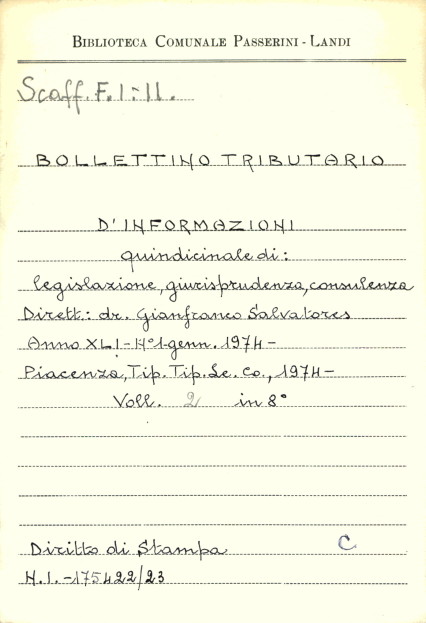 BIBLIOTECA COMUNALE PASSERINI - LANDI
Scaff. F. I : II.
BOLLETTINO TRIBUTARIO
D'INFORMAZIONI
quindicinale di:
legislazione, giurisprudenza, consulenza
Dirett: dr. Gianfranco Salvatores
Anno XLI - N° 1 - genn. 1974 -
Piacenza, Tip. Tip. Le. Co., 1974 -
Voll. 2 in 8°
Diritto di Stampa C
N. I. - 175422/23